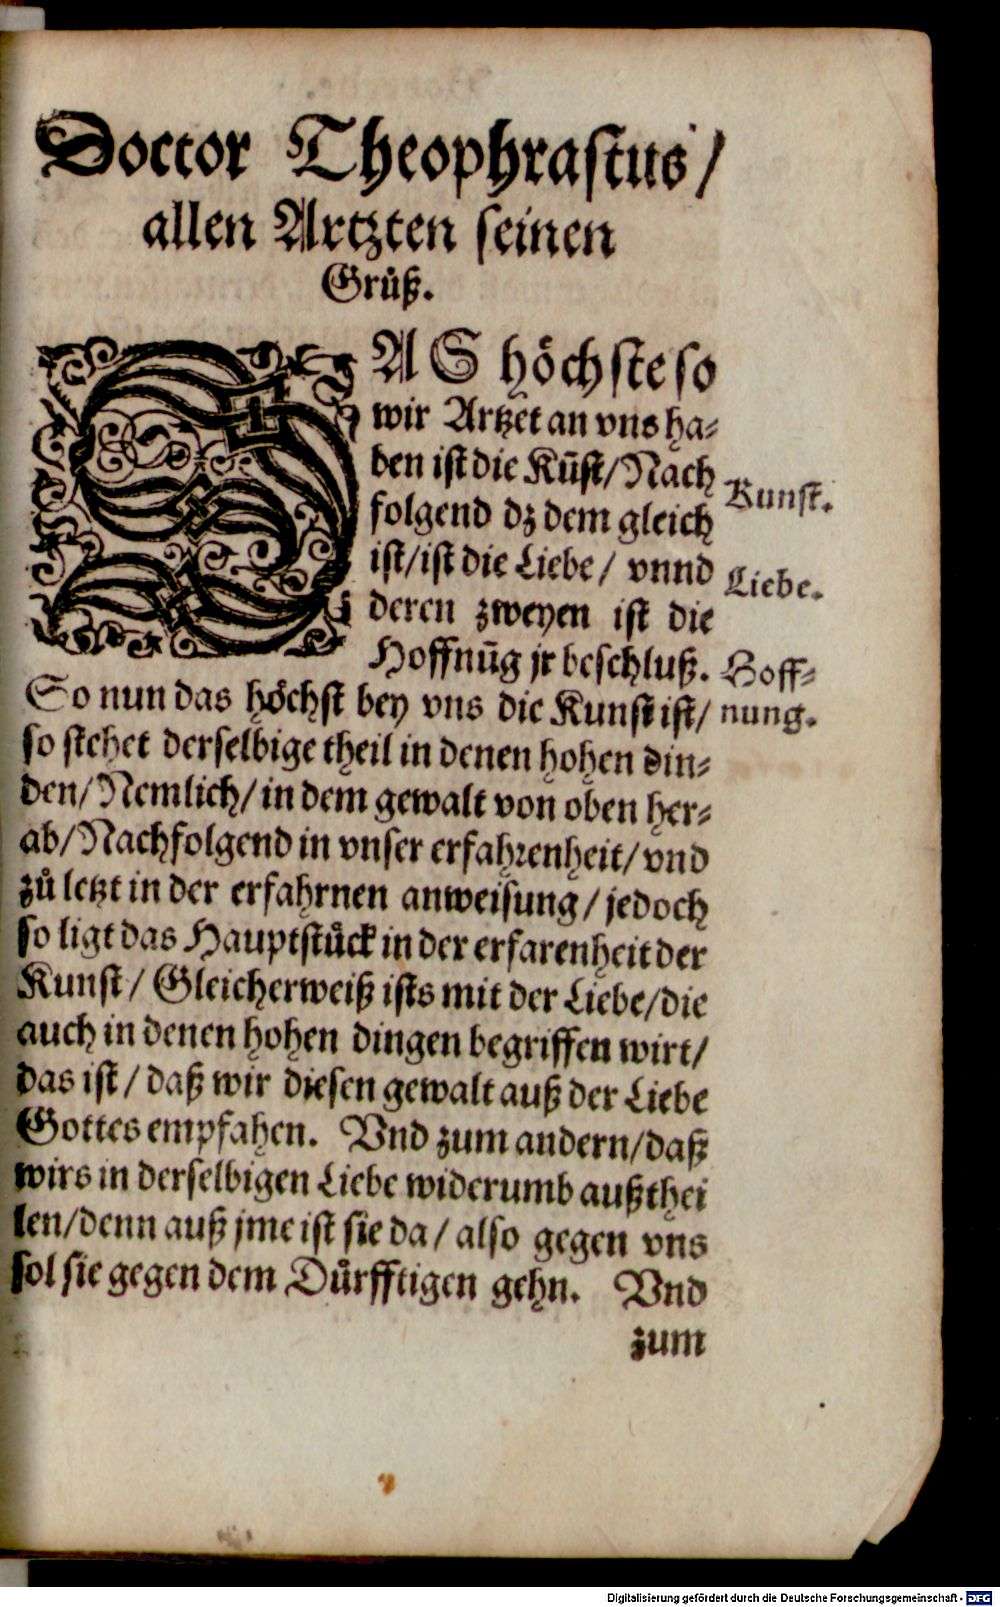 Doctor Theophrastus/
allen Artzten seinen
Grůß.
DAS höchste so
wir Artzet an vns ha⸗
ben ist die Kūst/Nach
folgend dz dem gleich
ist/ist die Liebe/ vnnd
deren zweyen ist die
Hoffnūg jr beschluß.
So nun das höchst bey vns die Kunst ist/
so stehet derselbige theil in denen hohen din⸗
den/Nemlich/in dem gewalt von oben her⸗
ab/Nachfolgend in vnser erfahrenheit/vnd
zů letzt in der erfahrnen anweisung/jedoch
so ligt das Hauptstůck in der erfarenheit der
Kunst/ Gleicherweiß ists mit der Liebe/die
auch in denen hohen dingen begriffen wirt/
das ist/daß wir diesen gewalt auß der Liebe
Gottes empfahen. Vnd zum andern/daß
wirs in derselbigen Liebe widerumb außthei
len/denn auß jme ist sie da/ also gegen vns
sol sie gegen dem Důrfftigen gehn. Vnd
zum
Kunst.
Liebe.
Hoff⸗
nung.
Digitalisierung gefördert durch die Deutsche Forschungsgemeinschaft - DFG